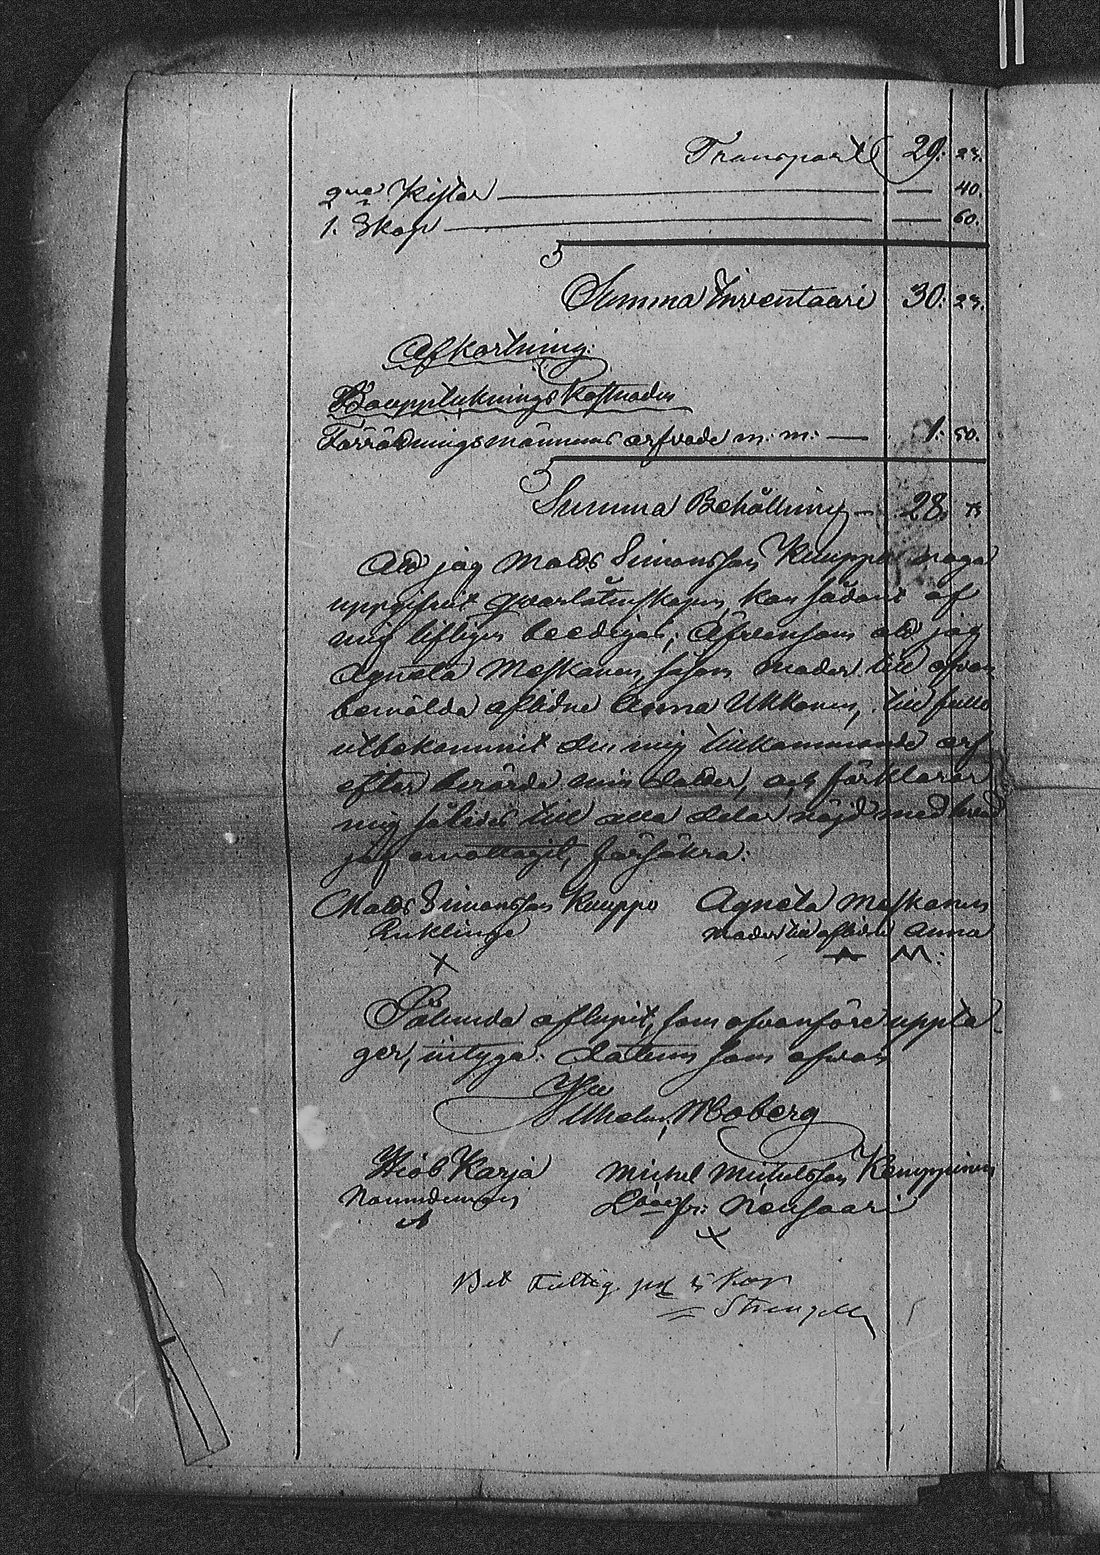 Transport 29: 23.
2ne Kistor — — 40.
1. Skop — — 60.
Summa Inventarii 30: 23.
Afkortning:
Boupptekningskostnaden
Förrättningsmännens arfvode m: m: — 1: 50.
Summa Behållning — 28. 73
Att jag Matts Simonsson Kauppo noga
uppgifvit qvarlåtenskapen, kan sådant af
mig lifligen beedigas; äfvensom att jag
Agneta Moskanen såsom moder till ofvan
bemälda aflidne Anna Ukkonen, till fullo
utbekommit den mig tillkommande arf
efter berörde min dotter, och förklarar
mig således till alla delar nöjd med hvad
jag emottagit, försäkra:
Matts Simonsson Kauppo Agneta Moskanen
Enklinge moder till aflidne Anna
X A M:
Sålunda aflupit, som ofvanföre uppta-
ger, intyga. Datum som ofvan
Wilhelm Moberg
Hiob Karja Michel Michelsson Kemppinen
Nämndeman från Nensaari
A X
Bet Fattig pr 5 Kop
Strengell